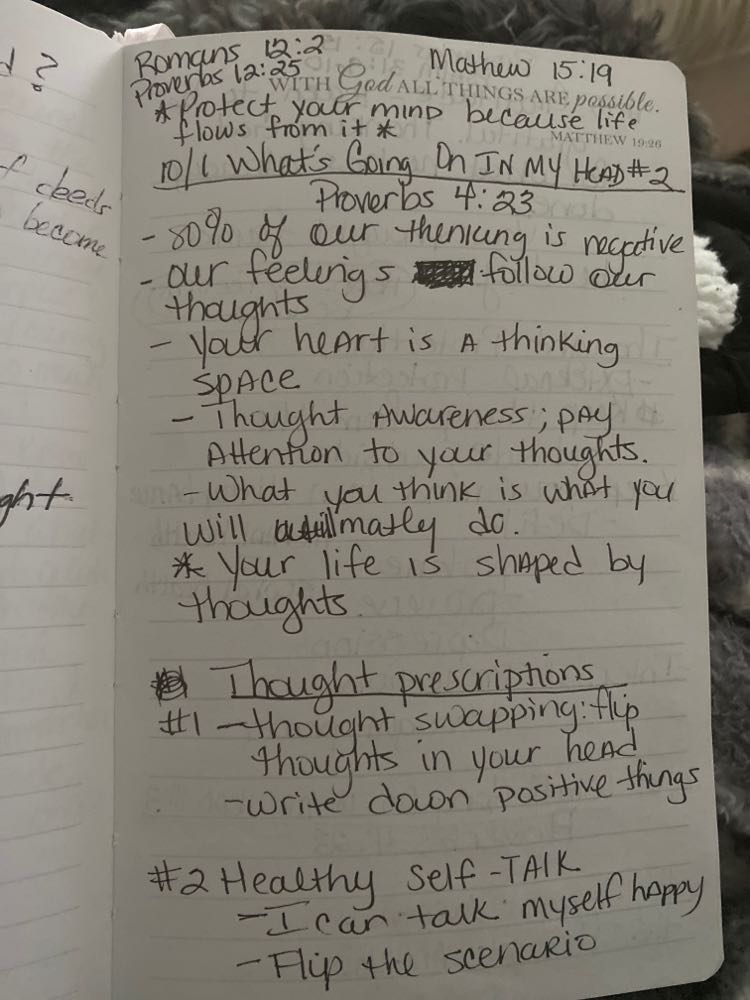 d ?
f deeds
become
ght
Romans 12:2
Mathew 15:19
Proverbs 12:25
WITH God ALL THINGS ARE possible.
*Protect your mind because life
flows from it *
MATTHEW 19:26
10/1 What's Going On IN MY HEAD #2
Proverbs 4:23
- 80% of our thenking is negative
- our feelings follow our
thoughts
- your heart is A thinking
space
- Thought Awareness; pay
Attention to your thoughts.
- What you think is what you
will matly do.
* Your life is shaped by
thoughts.
Thought prescriptions
#1 - thought swapping: flip
thoughts in your head
- write down positive things
#2 Healthy Self-TALK
- I can talk myself happy
- Flip the scenario